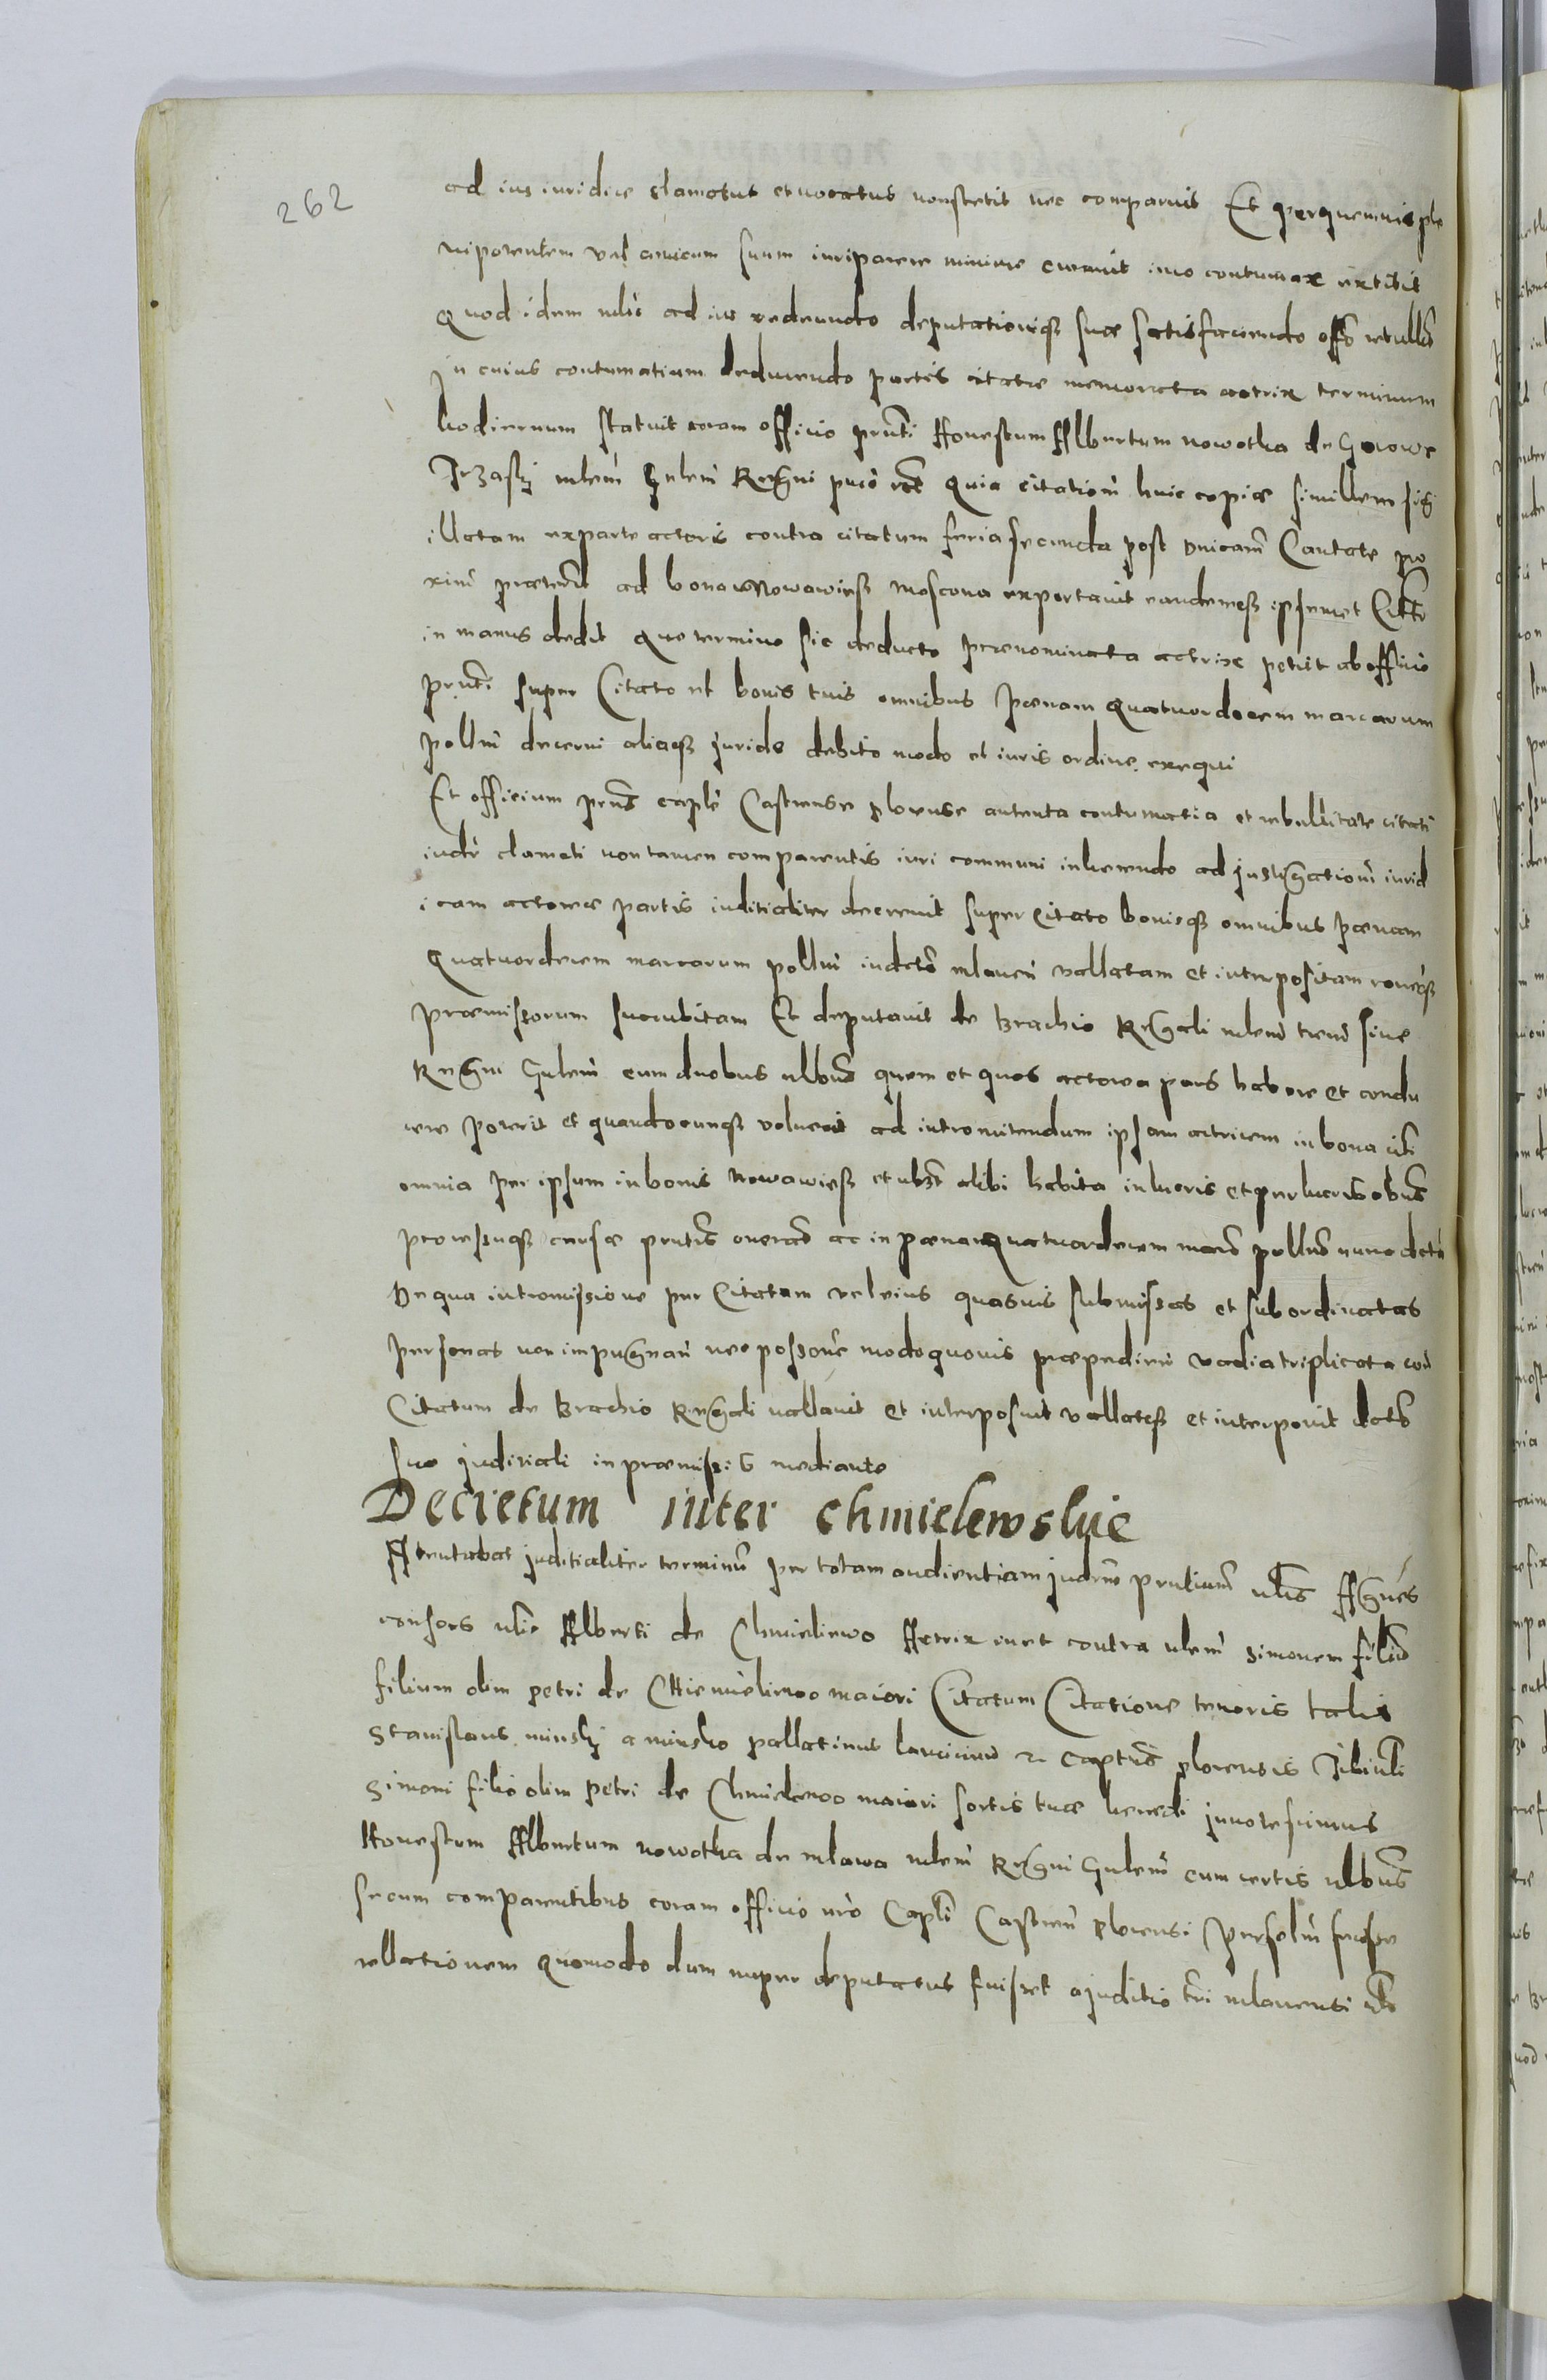 262
ad ius iuridice clamatus et vocatus non stetit nec comparuit Et per quemvis ple
ni potentem vel amicum suum iuri parere minime curavit imo contumax extitit
Quod idem mlis ad ius redeundo deputationiqz suae satisfaciendo offo retullit
In cuius contumatiam deducendo partis citatae memorata actrix terminum
hodiernum statuit coram officio prnti Honestum Albertum nowotka de
mlem Gnlem Regni quia citationem huic copiae simillem sigi
illatam ex parte actoris contra citatum feria secunda post dnicam Cantate pro
xime praeterit ad bona Nowawiesz Moscona exportavit eandemqz ipsemet Citto
in manus dedit quo termino sic deducto praenominata actrix petiit ab officio
prnti super Citato et bonis suis omnibus paenam quatuordecem marcarum
pollm decerni aliaqz juride debito modo et iuris ordine exequi
Et officium prns caple Castrense plocense attenta contumatia et rebellitate citati
iudr clamati non tamen comparentis iuri communi inherendo ad instigationem iurid
icam actoreae partis iuditialiter decrevit super Citato bonisqz omnibus paenam
quatuordecem marcarum pollm vallatam et interpositam
praemissorum succubitam Et deputavit de brachio Regali mlem sive
Regni Gnlem cum duobus nlbus quem et quos actorea pars habere et condu
cere poterit et quandocunqz voluerit ad intromitendum ipsam actricem in bona
omnia per ipsum in bonis Nowawiesz et ubivis alibi habita in lucris et perlucris obus
processuqz causae prntis ac in paenam quatuordecem marc pollm
De qua intromissione per Citatum vel eius quasvis submissas et subordinatas
personas non impugnari nec possone modo quovis praepediri vadia triplicata con
Citatum de brachio Regali vallavit et interposuit vallatqz et interponit
suo judiciali in praemissis mediante
Decretum inter chmielewskie
Attentabat juditialiter terminum per totam audientiam judrum prntium nlis Agnes
consors nlis Alberti de Chmieliewo Actrix contra nlem simonem filium
filium olim petri de Chmieliewo maiori Citatum Citatione tenoris talis
Stanislaus minskj a minsko pallatinus lancicien Captus plocensis Tibi nli
Simoni filio olim petri de Chmielewo maiori sortis tuae heredi innotescimus
Honestum Albertum nowotka de mlawa mlem Regni Gnlem cum certis nlbus
secum comparentibus coram officio nro Capli Castren plocensi fecisse
rellationem quomodo dum nuper deputatus fuisset a juditio mlavensi